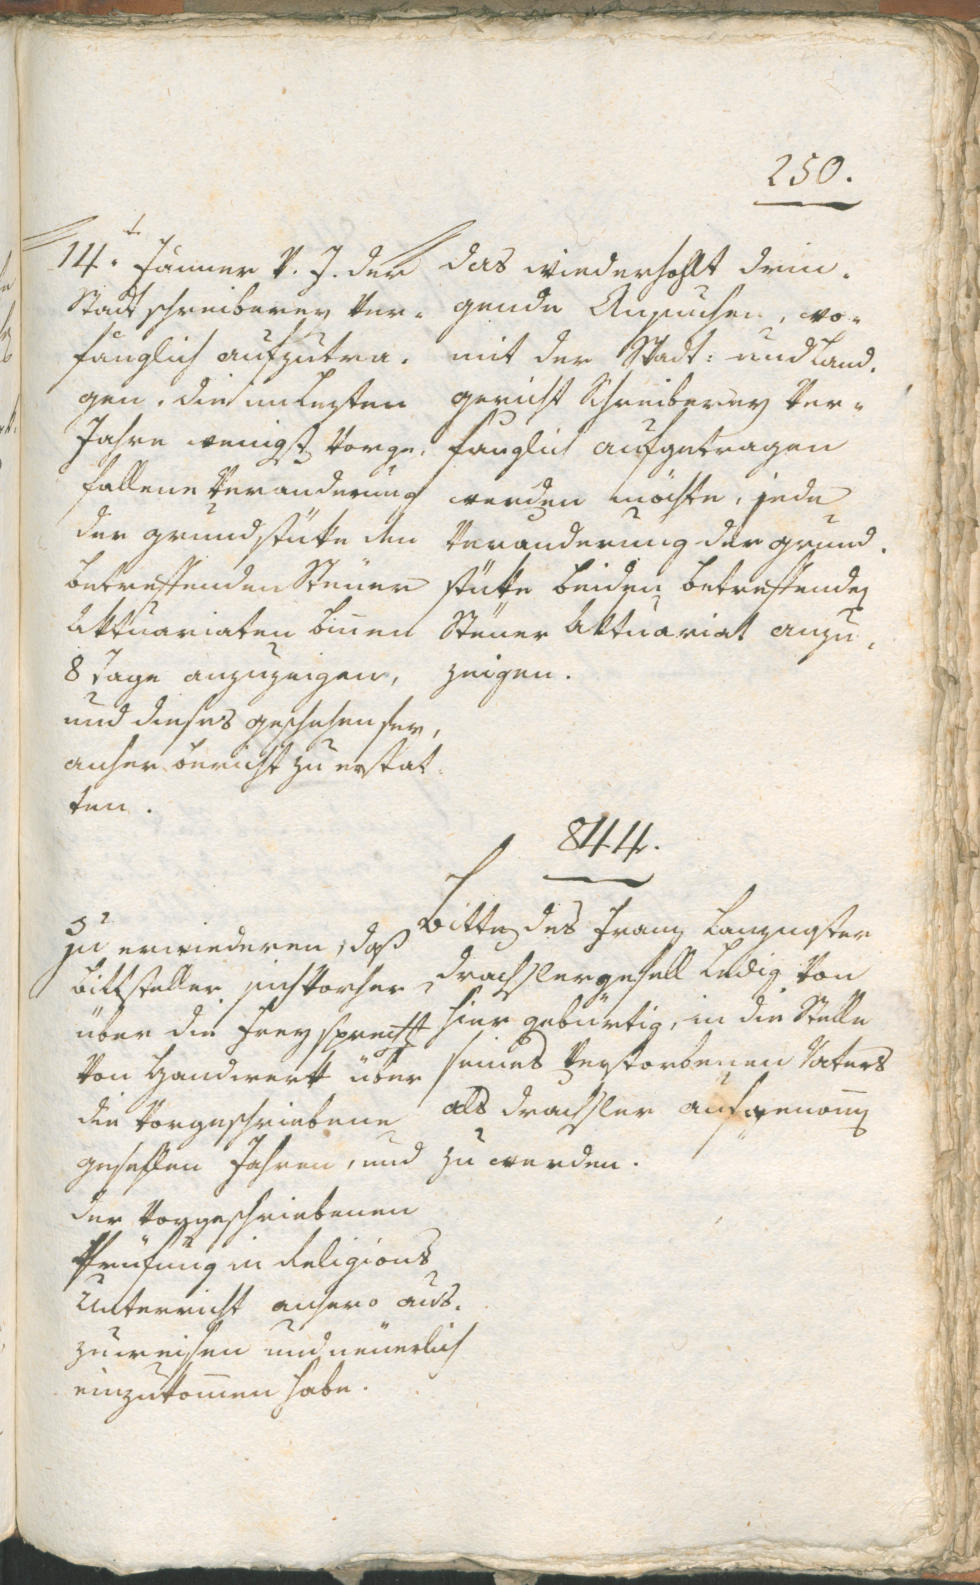 250.
14.t Jänner v. J. der
Stadtschreiberey ver-
fänglich aufzutra-
gen, die im lezten
Jahre wenigst vorge-
fallene Veränderung
der Grundstücke den
betreffenden Steuer
Aktuariaten binnen
8 Tage anzuzeigen,
und dieses geschehen sey,
anher Bericht zu erstat-
ten.
das wiederhohlt drin-
gende Ansuchen, wo-
mit der Stadt- und Land-
gericht Schreiberey ver-
fänglich aufgetragen
werden möchte, jede
Veränderung der Grund-
stücke bei den betreffenden
Steuer Aktuariat anzu-
zeigen.
844.
Zu erwiederen, daß
Bittsteller sich vorher
über die Freysprech
von Handwerk über
die vorgeschriebene
Gesellen Jahren, und
der vorgeschriebenen
Prüfung in Religions
Unterricht anhero aus-
zuweisen und neuerlich
einzukommen habe.
Bitte des Franz Langußter
Drachslergesell ledig von
hier gebürtig, in die Stelle
seines verstorbenen Vaters
als Drachsler aufgenommen
zu werden.